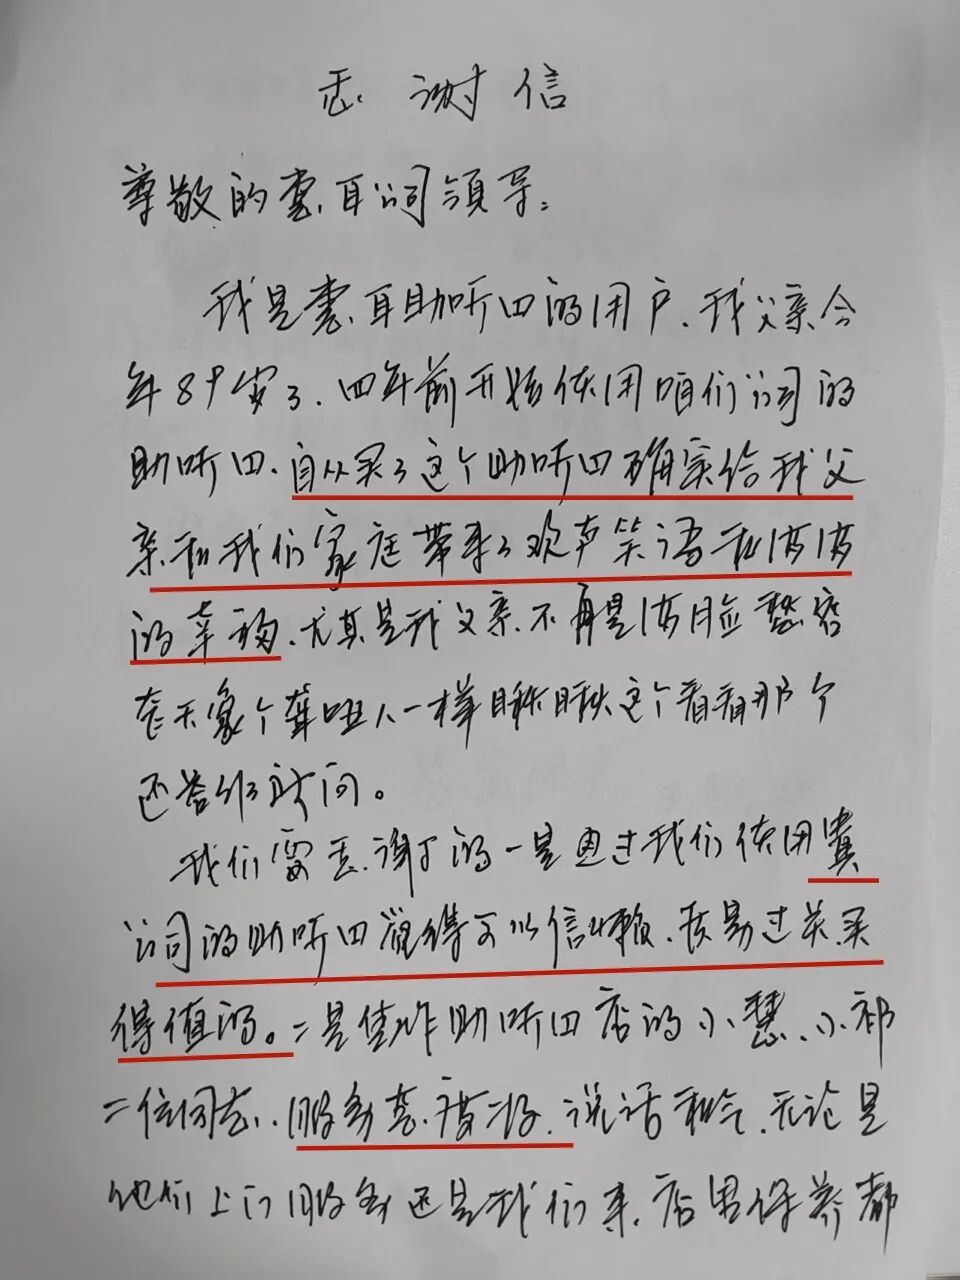 感谢信
尊敬的惠耳公司领导:
我是惠耳助听器的用户、我父亲今
年89岁了、四年前开始使用咱们公司的
助听器、自从买了这个助听器确实给我父
亲和我们家庭带来了欢声笑语和满满
的幸福、尤其是我父亲、不再是满脸愁容
整天象个聋哑人一样瞅瞅这个看看那个
还答非所问。
我们要感谢的一是通过我们使用贵
公司的助听器觉得可以信赖、质量过关、买
得值的。二是佳炸助听器店的小慧、小祁
二位同志、服务态度好、说话和气、无论是
他们上门服务还是我们来店里保养都